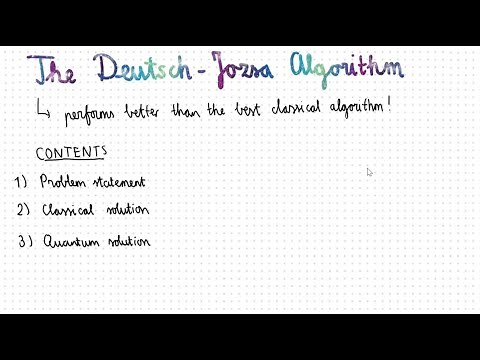 The Deutsch-Jozsa Algorithm
↳ performs better than the best classical algorithm!
CONTENTS
1) Problem statement
2) Classical solution
3) Quantum solution